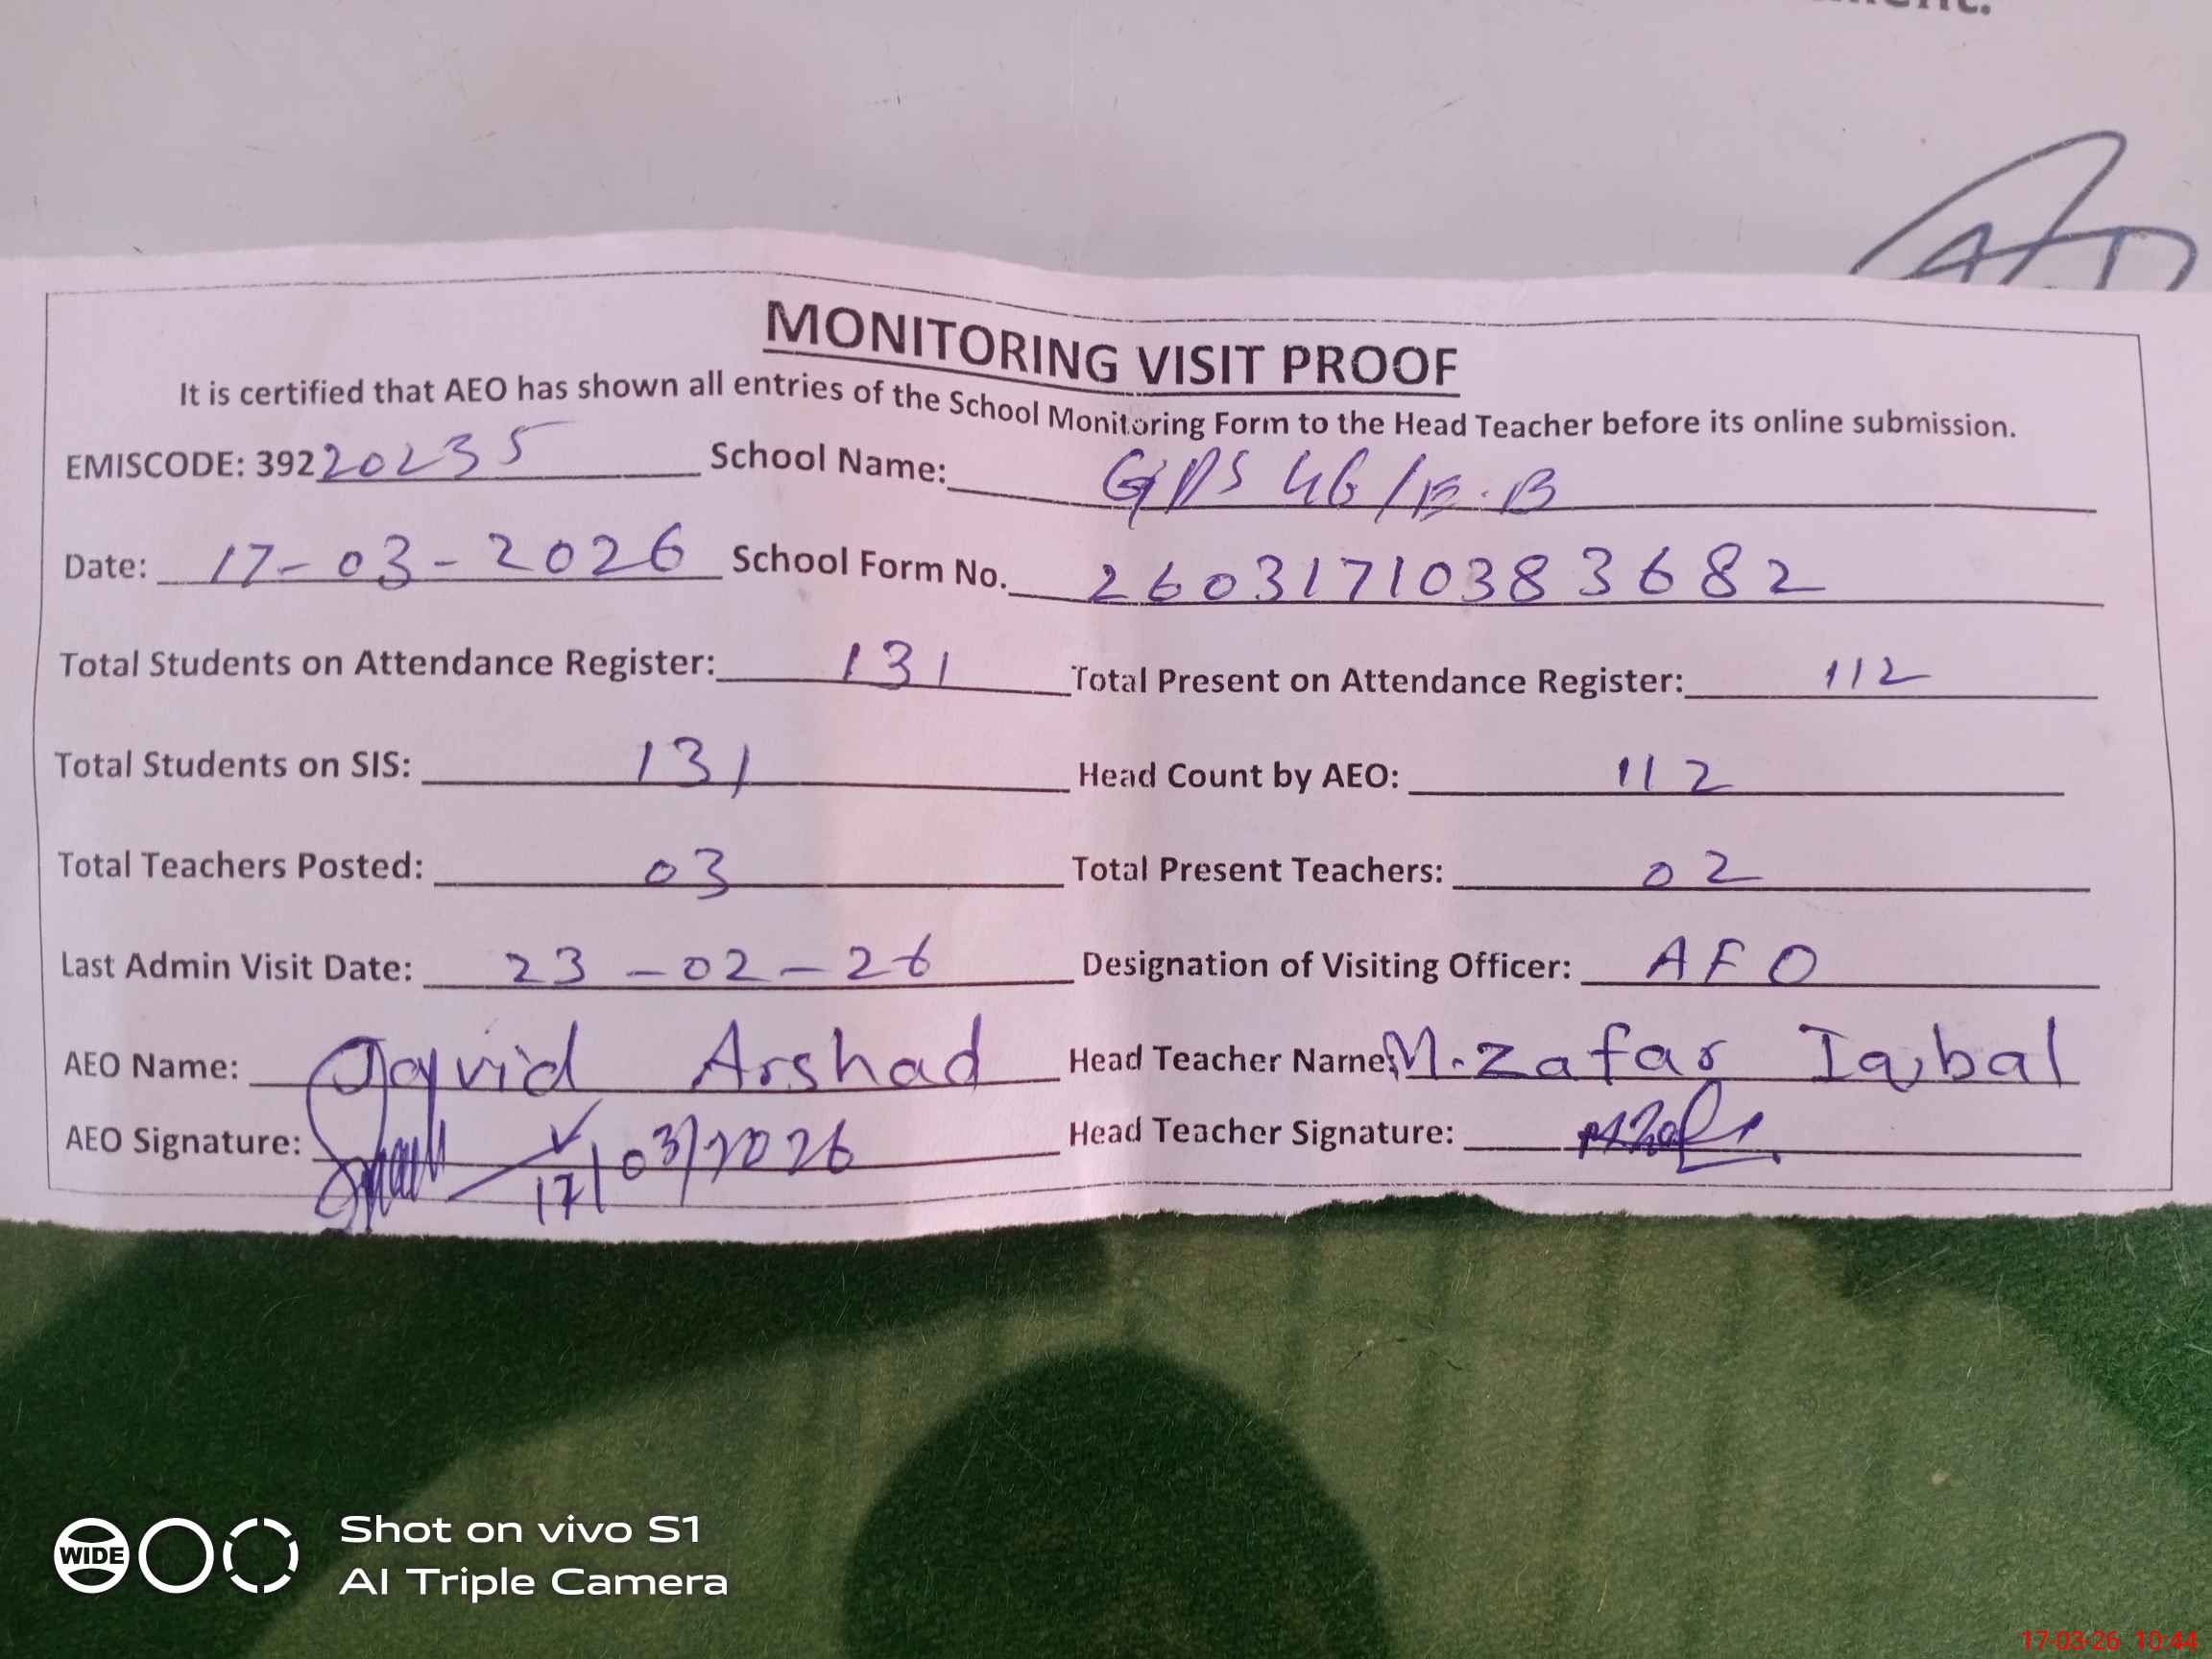 MONITORING VISIT PROOF
It is certified that AEO has shown all entries of the School Monitoring Form to the Head Teacher before its online submission.
EMISCODE: 39220235 School Name: GPS 46/E.B
Date: 17-03-2026 School Form No. 26031710383682
Total Students on Attendance Register: 131 Total Present on Attendance Register: 112
Total Students on SIS: 131 Head Count by AEO: 112
Total Teachers Posted: 03 Total Present Teachers: 02
Last Admin Visit Date: 23-02-26 Designation of Visiting Officer: AEO
AEO Name: Javid Arshad Head Teacher Name: M.Zafar Iqbal
AEO Signature: 17/03/2026 Head Teacher Signature:
WIDE
Shot on vivo S1
AI Triple Camera
17-03-26 10:44